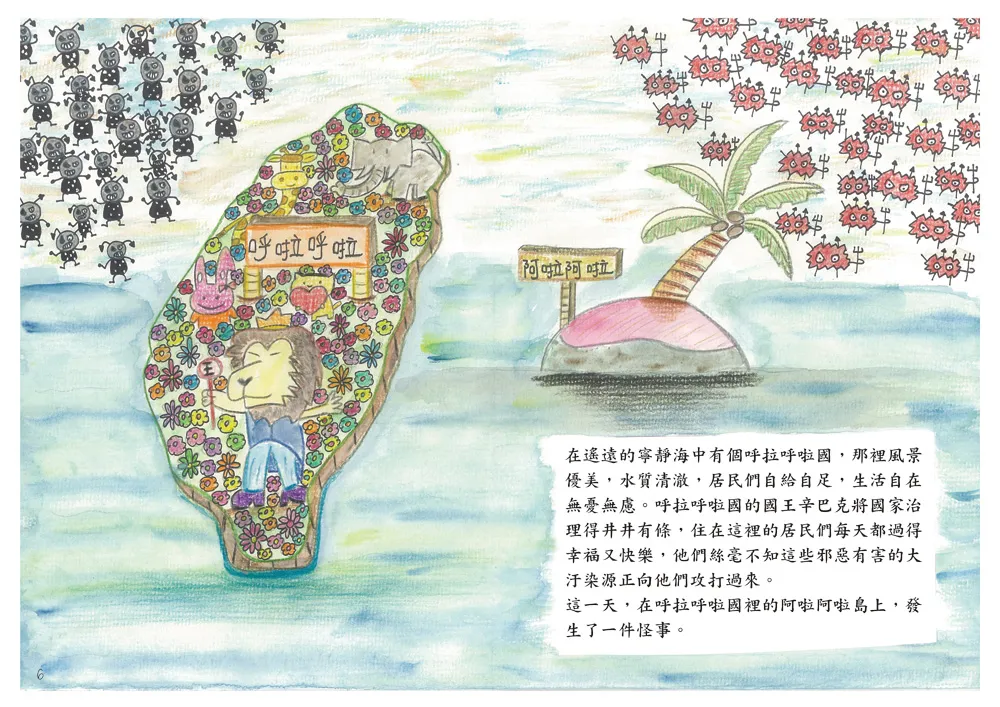 呼啦呼啦
阿啦阿啦
王
在遙遠的寧靜海中有個呼拉呼啦國，那裡風景
優美，水質清澈，居民們自給自足，生活自在
無憂無慮。呼拉呼啦國的國王辛巴克將國家治
理得井井有條，住在這裡的居民們每天都過得
幸福又快樂，他們絲毫不知這些邪惡有害的大
汙染源正向他們攻打過來。
這一天，在呼拉呼啦國裡的阿啦阿啦島上，發
生了一件怪事。
6